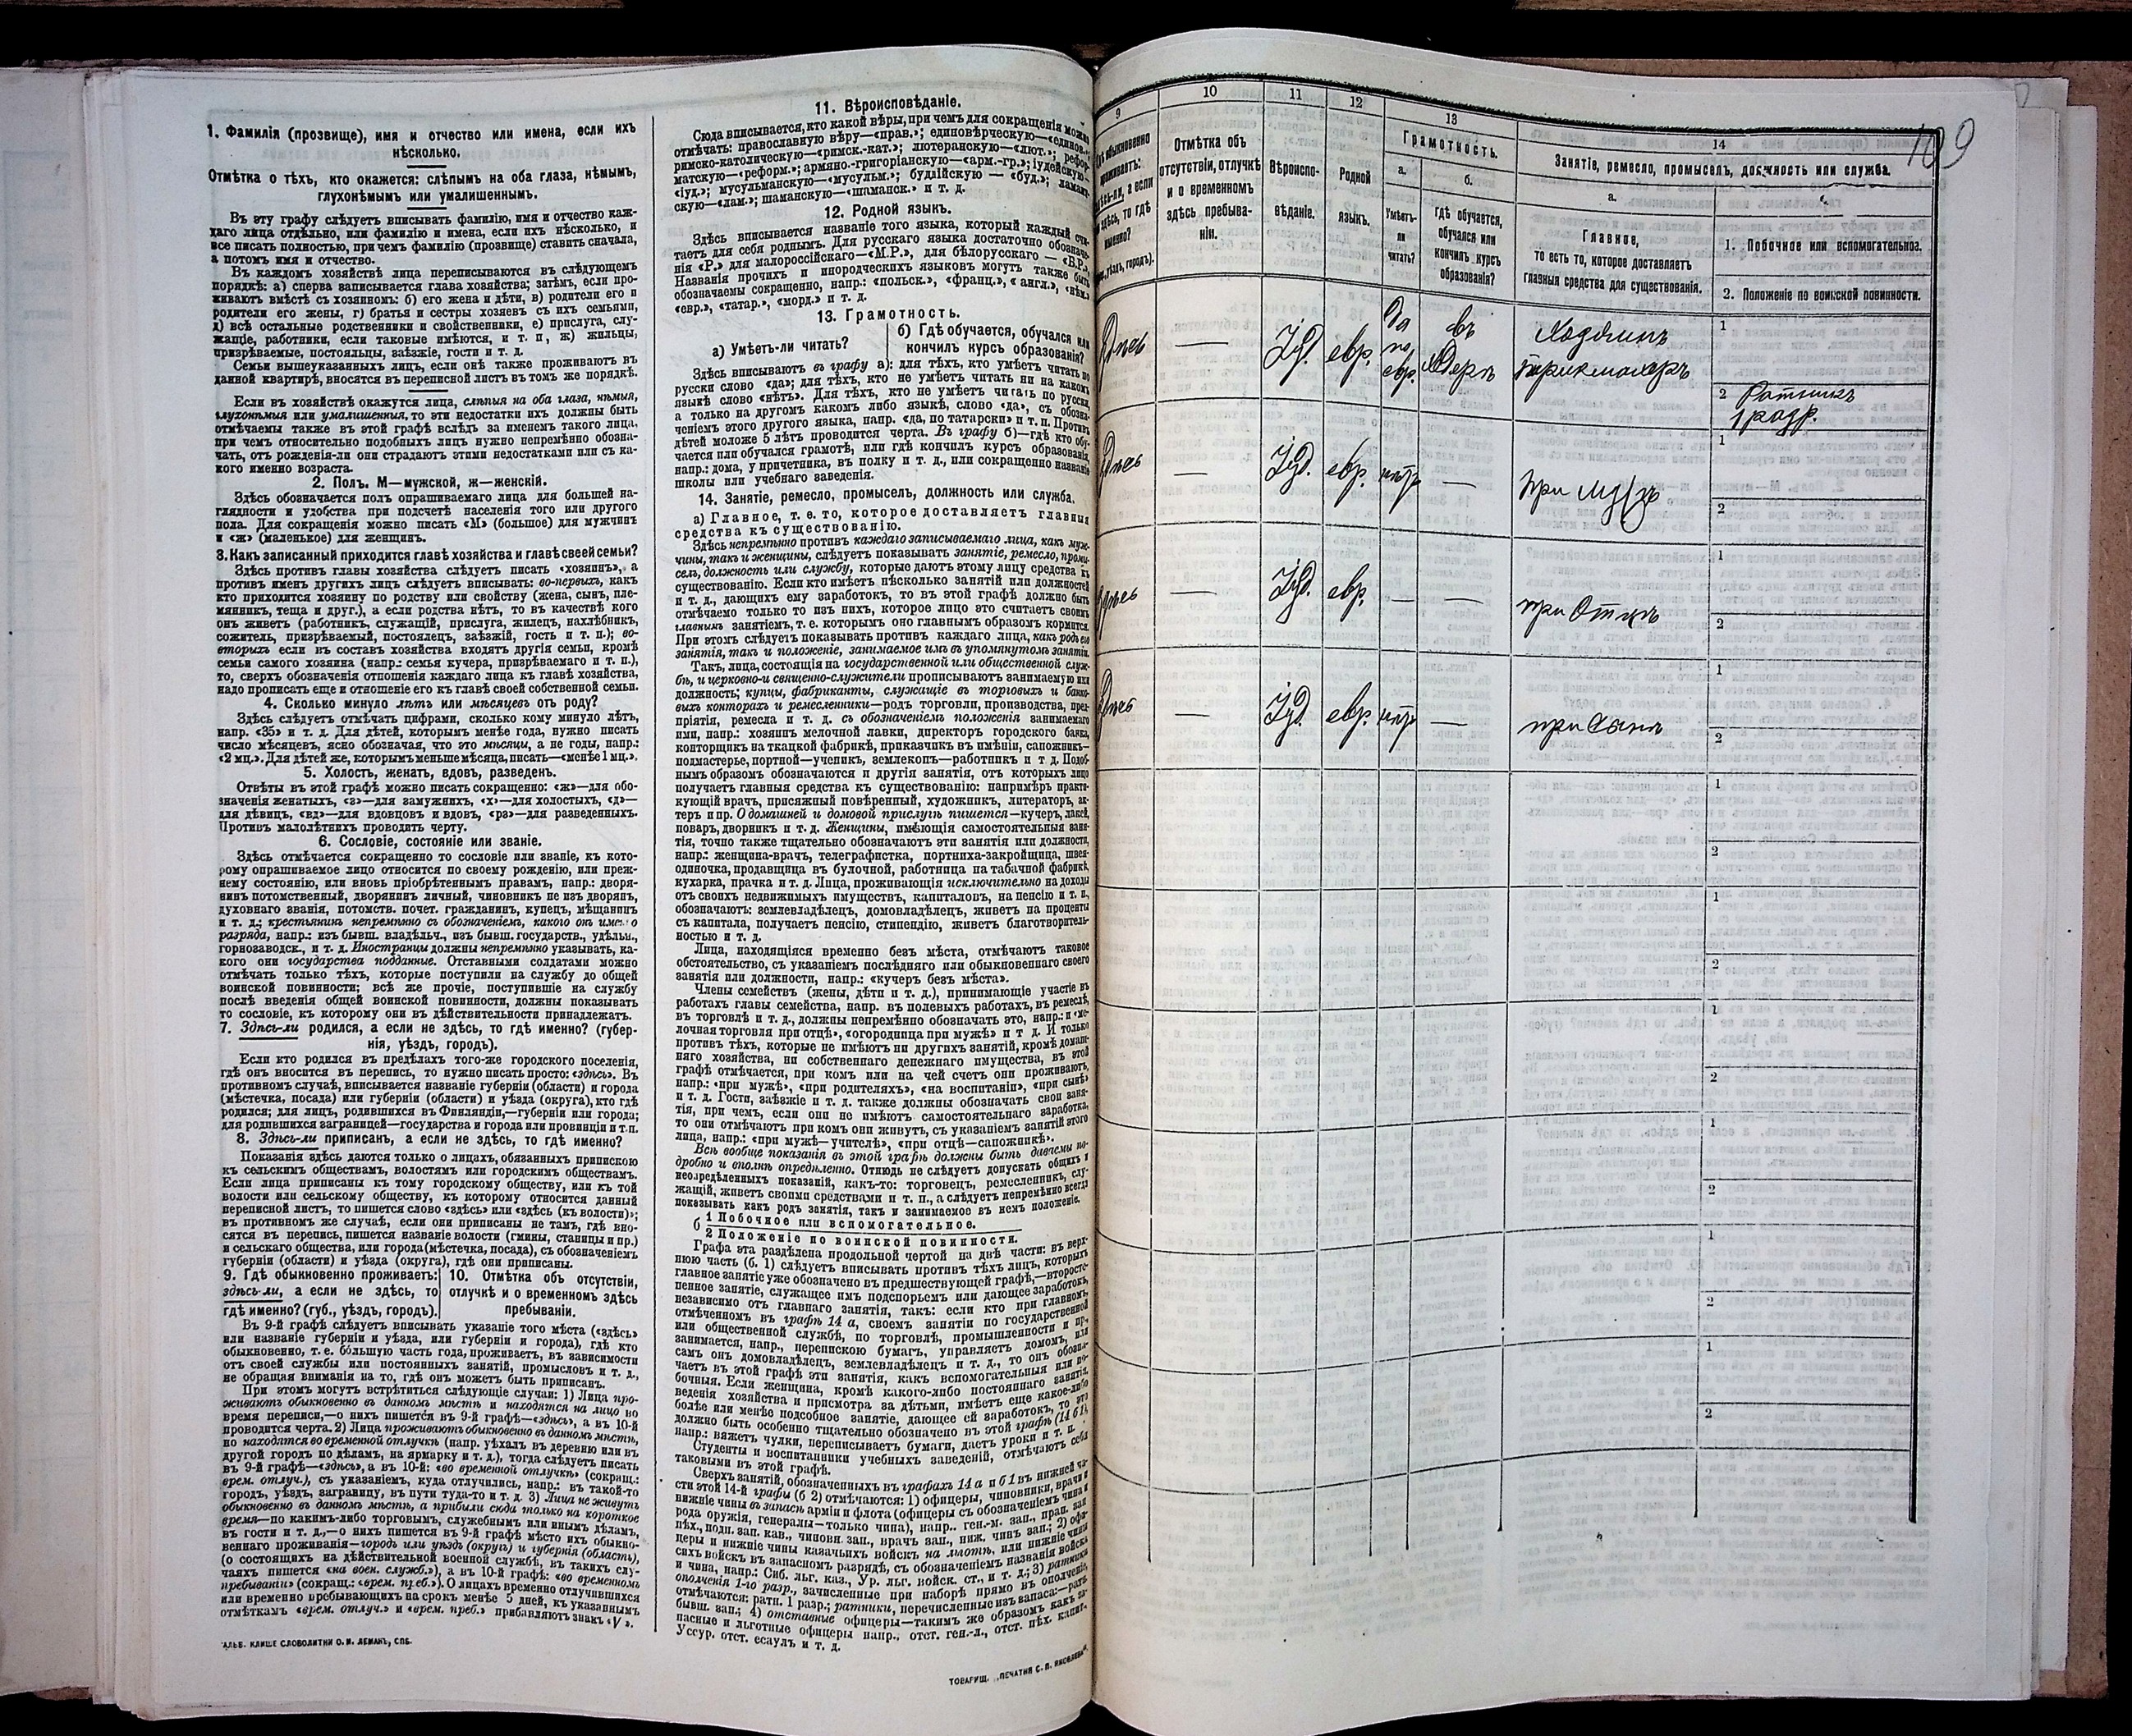 1. Фамилія (прозвище), имя и отчество или имена, если ихъ
нѣсколько.
Отмѣтка о тѣхъ, кто окажется: слѣпымъ на оба глаза, нѣмымъ,
глухонѣмымъ или умалишеннымъ.
Въ эту графу слѣдуетъ вписывать фамилію, имя и отчество каж-
даго лица отдѣльно, или фамилію и имена, если ихъ нѣсколько, и
все писать полностью, при чемъ фамилію (прозвище) ставить сначала,
а потомъ имя и отчество.
Въ каждомъ хозяйствѣ лица переписываются въ слѣдующемъ
порядкѣ: а) сперва записывается глава хозяйства; затѣмъ, если про-
живаютъ вмѣстѣ съ хозяиномъ: б) его жена и дѣти, в) родители его и
родители его жены, г) братья и сестры хозяевъ съ ихъ семьями,
д) всѣ остальные родственники и свойственники, е) прислуга, слу-
жащіе, работники, если таковые имѣются, и т. п., ж) жильцы,
призрѣваемые, постояльцы, заѣзжіе, гости и т. д.
Семьи вышеуказанныхъ лицъ, если онѣ также проживаютъ въ
данной квартирѣ, вносятся въ переписной листъ въ томъ же порядкѣ.
Если въ хозяйствѣ окажутся лица, слѣпыя на оба глаза, нѣмыя,
глухонѣмыя или умалишенныя, то эти недостатки ихъ должны быть
отмѣчаемы также въ этой графѣ вслѣдъ за именемъ такого лица,
при чемъ относительно подобныхъ лицъ нужно непремѣнно обозна-
чать, отъ рожденія-ли они страдаютъ этими недостатками или съ ка-
кого именно возраста.
2. Полъ. М—мужской, ж—женскій.
Здѣсь обозначается полъ опрашиваемаго лица для большей на-
глядности и удобства при подсчетѣ населенія того или другого
пола. Для сокращенія можно писать «М» (большое) для мужчинъ
и «ж» (маленькое) для женщинъ.
3. Какъ записанный приходится главѣ хозяйства и главѣ своей семьи?
Здѣсь противъ главы хозяйства слѣдуетъ писать «хозяинъ», а
противъ именъ другихъ лицъ слѣдуетъ вписывать: во-первыхъ, какъ
кто приходится хозяину по родству или свойству (жена, сынъ, пле-
мянникъ, теща и друг.), а если родства нѣтъ, то въ качествѣ кого
онъ живетъ (работникъ, служащій, прислуга, жилецъ, нахлѣбникъ,
сожитель, призрѣваемый, постоялецъ, заѣзжій, гость и т. п.); во-
вторыхъ если въ составъ хозяйства входятъ другія семьи, кромѣ
семьи самого хозяина (напр.: семья кучера, призрѣваемаго и т. п.),
то, сверхъ обозначенія отношенія каждаго лица къ главѣ хозяйства,
надо прописать еще и отношеніе его къ главѣ своей собственной семьи.
4. Сколько минуло лѣтъ или мѣсяцевъ отъ роду?
Здѣсь слѣдуетъ отмѣчать цифрами, сколько кому минуло лѣтъ,
напр. «35» и т. д. Для дѣтей, которымъ менѣе года, нужно писать
число мѣсяцевъ, ясно обозначая, что это мѣсяцы, а не годы, напр.:
«2 мц.». Для дѣтей же, которымъ меньше мѣсяца, писать—«менѣе 1 мц.».
5. Холостъ, женатъ, вдовъ, разведенъ.
Отвѣты въ этой графѣ можно писать сокращенно: «ж»—для обо-
значенія женатыхъ, «з»—для замужнихъ, «х»—для холостыхъ, «д»—
для дѣвицъ, «вд»—для вдовцовъ и вдовъ, «рз»—для разведенныхъ.
Противъ малолѣтнихъ проводить черту.
6. Сословіе, состояніе или званіе.
Здѣсь отмѣчается сокращенно то сословіе или званіе, къ кото-
рому опрашиваемое лицо относится по своему рожденію, или преж-
нему состоянію, или вновь пріобрѣтеннымъ правамъ, напр.: дворя-
нинъ потомственный, дворянинъ личный, чиновникъ не изъ дворянъ,
духовнаго званія, потомств. почет. гражданинъ, купецъ, мѣщанинъ
и т. д.; крестьянинъ непремѣнно съ обозначеніемъ, какого онъ именно
разряда, напр.: изъ бывш. владѣльч., изъ бывш. государств., удѣльн.,
горнозаводск., и т. д. Иностранцы должны непремѣнно указывать, ка-
кого они государства подданные. Отставными солдатами можно
отмѣчать только тѣхъ, которые поступили на службу до общей
воинской повинности; всѣ же прочіе, поступившіе на службу
послѣ введенія общей воинской повинности, должны показывать
то сословіе, къ которому они въ дѣйствительности принадлежатъ.
7. Здѣсь-ли родился, а если не здѣсь, то гдѣ именно? (губер-
нія, уѣздъ, городъ).
Если кто родился въ предѣлахъ того-же городского поселенія,
гдѣ онъ вносится въ перепись, то нужно писать просто: «здѣсь». Въ
противномъ случаѣ, вписывается названіе губерніи (области) и города
(мѣстечка, посада) или губерніи (области) и уѣзда (округа), кто гдѣ
родился; для лицъ, родившихся въ Финляндіи,—губерніи или города;
для родившихся заграницей—государства и города или провинціи и т.п.
8. Здѣсь-ли приписанъ, а если не здѣсь, то гдѣ именно?
Показанія здѣсь даются только о лицахъ, обязанныхъ припискою
къ сельскимъ обществамъ, волостямъ или городскимъ обществамъ.
Если лица приписаны къ тому городскому обществу, или къ той
волости или сельскому обществу, къ которому относится данный
переписной листъ, то пишется слово «здѣсь» или «здѣсь (къ волости)»;
въ противномъ же случаѣ, если они приписаны не тамъ, гдѣ вно-
сятся въ перепись, пишется названіе волости (гмины, станицы и пр.)
и сельскаго общества, или города (мѣстечка, посада), съ обозначеніемъ
губерніи (области) и уѣзда (округа), гдѣ они приписаны.
9. Гдѣ обыкновенно проживаетъ:
здѣсь-ли, а если не здѣсь, то
гдѣ именно? (губ., уѣздъ, городъ).
10. Отмѣтка объ отсутствіи,
отлучкѣ и о временномъ здѣсь
пребываніи.
Въ 9-й графѣ слѣдуетъ вписывать указаніе того мѣста («здѣсь»
или названіе губерніи и уѣзда, или губерніи и города), гдѣ кто
обыкновенно, т. е. бо́льшую часть года, проживаетъ, въ зависимости
отъ своей службы или постоянныхъ занятій, промысловъ и т. д.,
не обращая вниманія на то, гдѣ онъ можетъ быть приписанъ.
При этомъ могутъ встрѣтиться слѣдующіе случаи: 1) Лица про-
живаютъ обыкновенно въ данномъ мѣстѣ и находятся на лицо во
время переписи,—о нихъ пишется въ 9-й графѣ—«здѣсь», а въ 10-й
проводится черта. 2) Лица проживаютъ обыкновенно въ данномъ мѣстѣ,
но находятся во временной отлучкѣ (напр. уѣхалъ въ деревню или въ
другой городъ по дѣламъ, на ярмарку и т. д.), тогда слѣдуетъ писать
въ 9-й графѣ—«здѣсь», а въ 10-й: «во временной отлучкѣ» (сокращ.:
врем. отлуч.), съ указаніемъ, куда отлучились, напр.: въ такой-то
городъ, уѣздъ, заграницу, въ пути туда-то и т. д. 3) Лица не живутъ
обыкновенно въ данномъ мѣстѣ, а прибыли сюда только на короткое
время—по какимъ-либо торговымъ, служебнымъ или инымъ дѣламъ,
въ гости и т. д.,—о нихъ пишется въ 9-й графѣ мѣсто ихъ обыкно-
веннаго проживанія—городъ или уѣздъ (округъ) и губернія (область),
(о состоящихъ на дѣйствительной военной службѣ, въ такихъ слу-
чаяхъ пишется «на воен. служб.»), а въ 10-й графѣ: «во временномъ
пребываніи» (сокращ.: «врем. преб.»). О лицахъ временно отлучившихся
или временно пребывающихъ на срокъ менѣе 5 дней, къ указаннымъ
отмѣткамъ «врем. отлуч.» и «врем. преб.» прибавляютъ знакъ «V».
ГАЛЬВ. КЛИШЕ СЛОВОЛИТНИ О. И. ЛЕМАНЪ, СПБ.
11. Вѣроисповѣданіе.
Сюда вписывается, кто какой вѣры, при чемъ для сокращенія можно
отмѣчать: православную вѣру—«прав.»; единовѣрческую—«единов.»;
римско-католическую—«римск.-кат.»; лютеранскую—«лют.»; рефор-
матскую—«реформ.»; армяно-григоріанскую—«арм.-гр.»; іудейскую—
«іуд.»; мусульманскую—«мусульм.»; буддійскую — «буд.»; ламаит-
скую—«лам.»; шаманскую—«шаманск.» и т. д.
12. Родной языкъ.
Здѣсь вписывается названіе того языка, который каждый счи-
таетъ для себя роднымъ. Для русскаго языка достаточно обозначе-
нія «Р.» для малороссійскаго—«М.Р.», для бѣлорусскаго — «Б.Р.».
Названія прочихъ и инородческихъ языковъ могутъ также быть
обозначаемы сокращенно, напр.: «польск.», «франц.», «англ.», «нѣм.»
«евр.», «татар.», «морд.» и т. д.
13. Грамотность.
а) Умѣетъ-ли читать?
б) Гдѣ обучается, обучался или
кончилъ курсъ образованія?
Здѣсь вписываютъ въ графу а): для тѣхъ, кто умѣетъ читать по
русски слово «да»; для тѣхъ, кто не умѣетъ читать ни на какомъ
языкѣ слово «нѣтъ». Для тѣхъ, кто не умѣетъ читать по русски,
а только на другомъ какомъ либо языкѣ, слово «да», съ обозна-
ченіемъ этого другого языка, напр. «да, по татарски» и т. п. Противъ
дѣтей моложе 5 лѣтъ проводится черта. Въ графу б)—гдѣ кто обу-
чается или обучался грамотѣ, или гдѣ кончилъ курсъ образованія,
напр.: дома, у причетника, въ полку и т. д., или сокращенно названіе
школы или учебнаго заведенія.
14. Занятіе, ремесло, промыселъ, должность или служба.
а) Главное, т. е. то, которое доставляетъ главныя
средства къ существованію.
Здѣсь непремѣнно противъ каждаго записываемаго лица, какъ муж-
чины, такъ и женщины, слѣдуетъ показывать занятіе, ремесло, промы-
селъ, должность или службу, которые даютъ этому лицу средства къ
существованію. Если кто имѣетъ нѣсколько занятій или должностей
и т. д., дающихъ ему заработокъ, то въ этой графѣ должно быть
отмѣчаемо только то изъ нихъ, которое лицо это считаетъ своимъ
главнымъ занятіемъ, т. е. которымъ оно главнымъ образомъ кормится.
При этомъ слѣдуетъ показывать противъ каждаго лица, какъ родъ его
занятія, такъ и положеніе, занимаемое имъ въ упомянутомъ занятіи.
Такъ, лица, состоящія на государственной или общественной служ-
бѣ, и церковно-и священно-служители прописываютъ занимаемую ими
должность; купцы, фабриканты, служащіе въ торговыхъ и банко-
выхъ конторахъ и ремесленники—родъ торговли, производства, пред-
пріятія, ремесла и т. д. съ обозначеніемъ положенія занимаемаго
ими, напр.: хозяинъ мелочной лавки, директоръ городского банка,
конторщикъ на ткацкой фабрикѣ, приказчикъ въ имѣніи, сапожникъ—
подмастерье, портной—ученикъ, землекопъ—работникъ и т д. Подоб-
нымъ образомъ обозначаются и другія занятія, отъ которыхъ лицо
получаетъ главныя средства къ существованію: напримѣръ практи-
кующій врачъ, присяжный повѣренный, художникъ, литераторъ, ак-
теръ и пр. О домашней и домовой прислугѣ пишется—кучеръ, лакей,
поваръ, дворникъ и т. д. Женщины, имѣющія самостоятельныя заня-
тія, точно также тщательно обозначаютъ эти занятія или должности,
напр.: женщина-врачъ, телеграфистка, портниха-закройщица, швея-
одиночка, продавщица въ булочной, работница на табачной фабрикѣ,
кухарка, прачка и т. д. Лица, проживающія исключительно на доходы
отъ своихъ недвижимыхъ имуществъ, капиталовъ, на пенсію и т. п.,
обозначаютъ: землевладѣлецъ, домовладѣлецъ, живетъ на проценты
съ капитала, получаетъ пенсію, стипендію, живетъ благотворитель-
ностью и т. д.
Лица, находящіяся временно безъ мѣста, отмѣчаютъ таковое
обстоятельство, съ указаніемъ послѣдняго или обыкновеннаго своего
занятія или должности, напр.: «кучеръ безъ мѣста».
Члены семействъ (жены, дѣти и т. д.), принимающіе участіе въ
работахъ главы семейства, напр. въ полевыхъ работахъ, въ ремеслѣ,
въ торговлѣ и т. д., должны непремѣнно обозначать это, напр.: «ме-
лочная торговля при отцѣ», «огородница при мужѣ» и т д. И только
противъ тѣхъ, которые не имѣютъ ни другихъ занятій, кромѣ домаш-
няго хозяйства, ни собственнаго денежнаго имущества, въ этой
графѣ отмѣчается, при комъ или на чей счетъ они проживаютъ,
напр.: «при мужѣ», «при родителяхъ», «на воспитаніи», «при сынѣ»
и т. д. Гости, заѣзжіе и т. д. также должны обозначать свои заня-
тія, при чемъ, если они не имѣютъ самостоятельнаго заработка,
то они отмѣчаютъ при комъ они живутъ, съ указаніемъ занятій этого
лица, напр.: «при мужѣ—учителѣ», «при отцѣ—сапожникѣ».
Всѣ вообще показанія въ этой графѣ должны быть даваемы по-
дробно и вполнѣ опредѣленно. Отнюдь не слѣдуетъ допускать общихъ и
неопредѣленныхъ показаній, какъ-то: торговецъ, ремесленникъ, слу-
жащій, живетъ своими средствами и т. п., а слѣдуетъ непремѣнно всегда
показывать какъ родъ занятія, такъ и занимаемое въ немъ положеніе.
б 1 Побочное или вспомогательное.
2 Положеніе по воинской повинности.
Графа эта раздѣлена продольной чертой на двѣ части: въ верх-
нюю часть (б. 1) слѣдуетъ вписывать противъ тѣхъ лицъ, которыхъ
главное занятіе уже обозначено въ предшествующей графѣ,—второсте-
пенное занятіе, служащее имъ подспорьемъ или дающее заработокъ,
независимо отъ главнаго занятія, такъ: если кто при главномъ,
отмѣченномъ въ графѣ 14 а, своемъ занятіи по государственной
или общественной службѣ, по торговлѣ, промышленности и пр.,
занимается, напр., перепискою бумагъ, управляетъ домомъ, или
самъ онъ домовладѣлецъ, землевладѣлецъ и т. д., то онъ обозна-
чаетъ въ этой графѣ эти занятія, какъ вспомогательныя или по-
бочныя. Если женщина, кромѣ какого-либо постояннаго занятія,
веденія хозяйства и присмотра за дѣтьми, имѣетъ еще какое-либо
болѣе или менѣе подсобное занятіе, дающее ей заработокъ, то это
должно быть особенно тщательно обозначено въ этой графѣ (14 б 1),
напр.: вяжетъ чулки, переписываетъ бумаги, даетъ уроки и т. п.
Студенты и воспитанники учебныхъ заведеній, отмѣчаютъ себя
таковыми въ этой графѣ.
Сверхъ занятій, обозначенныхъ въ графахъ 14 а и б 1 въ нижней ча-
сти этой 14-й графы (б 2) отмѣчаются: 1) офицеры, чиновники, врачи и
нижніе чины въ запасѣ арміи и флота (офицеры съ обозначеніемъ чина и
рода оружія, генералы—только чина), напр.. ген.-м. зап., прап. зап
пѣх., подп. зап. кав., чиновн. зап., врачъ зап., ниж. чинъ зап.; 2) офи-
церы и нижніе чины казачьихъ войскъ на льготѣ, или нижніе чины
сихъ войскъ въ запасномъ разрядѣ, съ обозначеніемъ названія войска
и чина, напр.: Сиб. льг. каз., Ур. льг. войск. ст., и т. д.; 3) ратники
ополченія 1-го разр., зачисленные при наборѣ прямо въ ополченіе,
отмѣчаются: ратн. 1 разр.; ратники, перечисленные изъ запаса:—ратн.
бывш. зап.; 4) отставные офицеры—такимъ же образомъ какъ за-
пасные и льготные офицеры напр., отст. ген.-л., отст. пѣх. капит.,
Уссур. отст. есаулъ и т. д.
ТОВАРИЩ. „ПЕЧАТНЯ С. П. ЯКОВЛЕВА“.
109
9 10 11 12 13 14
обыкновенно
проживаетъ:
здѣсь-ли, а если
здѣсь, то гдѣ
именно?
уѣздъ, городъ).
Отмѣтка объ
отсутствіи, отлучкѣ
и о временномъ
здѣсь пребыва-
ніи.
Вѣроиспо-
вѣданіе.
Родной
языкъ.
Грамотность.
а.
Умѣетъ-
ли
читать?
б.
Гдѣ обучается,
обучался или
кончилъ курсъ
образованія?
Занятіе, ремесло, промыселъ, должность или служба.
а.
Главное,
то есть то, которое доставляетъ
главныя средства для существованія.
1. Побочное или вспомогательноэ.
2. Положеніе по воинской повинности.
Здѣсь — Іуд. евр. Да по евр. въ Хедерѣ
1
2 Ратникъ
1 разр.
Здѣсь — Іуд. евр. нѣтъ — при Мужѣ
1
2
Здѣсь — Іуд. евр. — — при Отцѣ
1
2
Здѣсь — Іуд. евр. нѣтъ — при Сынѣ
1
2
1
2
1
2
1
2
1
2
1
2
1
2